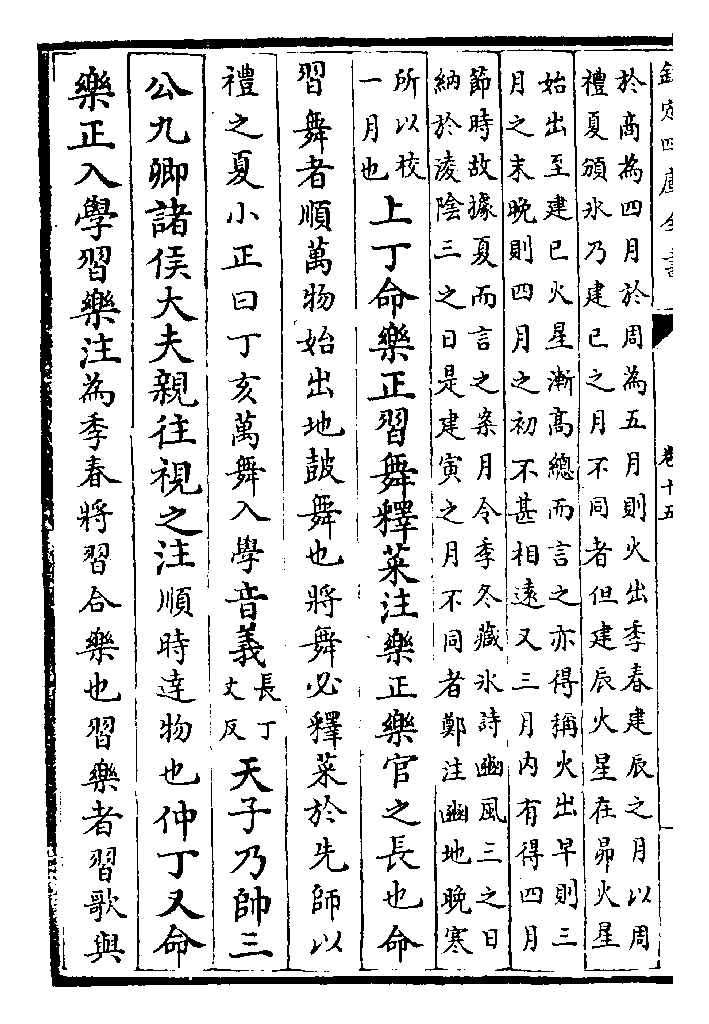 欽定四庫全書
卷十五
於商為四月於周為五月則火出季春建辰之月以周
禮夏頒氷乃建已之月不同者但建辰火星在昴火星
始出至建已火星漸髙總而言之亦得稱火出早則三
月之末晚則四月之初不甚相逺又三月内有得四月
節時故據夏而言之案月令季冬藏氷詩豳風三之日
納於凌隂三之日是建寅之月不同者鄭注豳地晚寒
所以校
一月也
上丁命樂正習舞釋菜注樂正樂官之長也命
習舞者順萬物始出地鼓舞也將舞必釋菜於先師以
禮之夏小正曰丁亥萬舞入學音義
長丁
丈反
天子乃帥三
公九卿諸侯大夫親往視之注順時達物也仲丁又命
樂正入學習樂注為季春將習合樂也習樂者習歌與